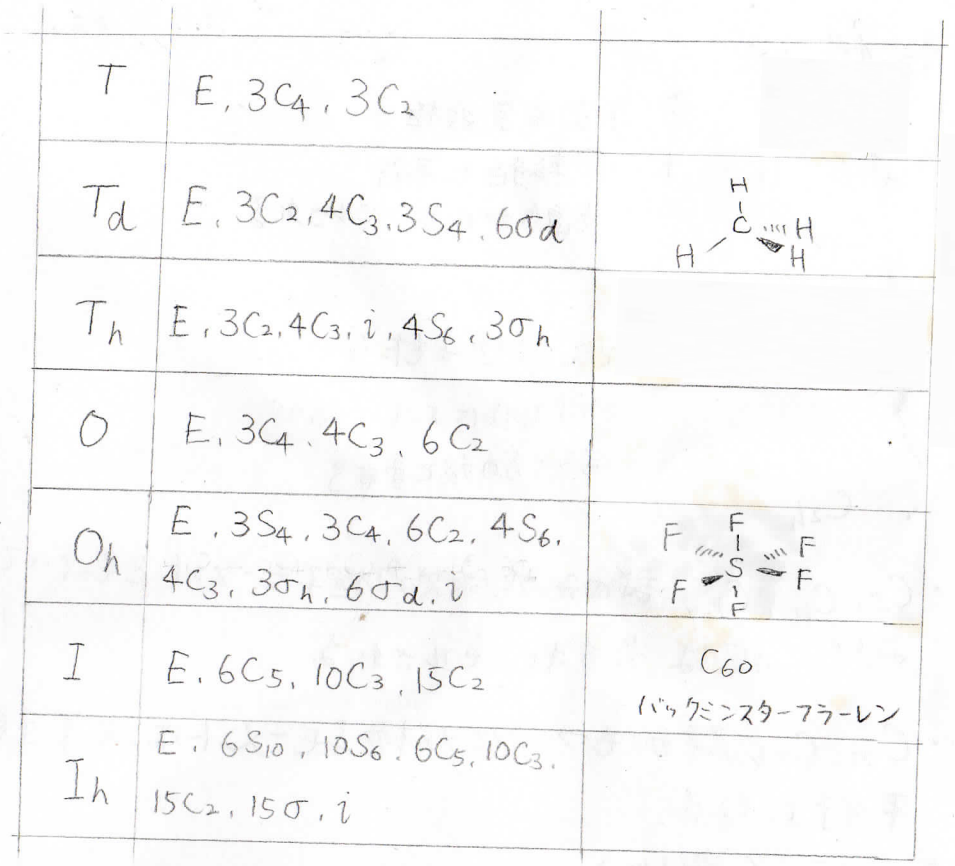 T E, 3C₄, 3C₂
T_d E, 3C₂, 4C₃, 3S₄, 6σd
H
C H
H H
T_h E, 3C₂, 4C₃, i, 4S₆, 3σh
O E, 3C₄, 4C₃, 6C₂
O_h E, 3S₄, 3C₄, 6C₂, 4S₆,
4C₃, 3σh, 6σd, i
F F F
S
F F F
I E, 6C₅, 10C₃, 15C₂
C60
バックミンスターフラーレン
I_h E, 6S₁₀, 10S₆, 6C₅, 10C₃,
15C₂, 15σ, i